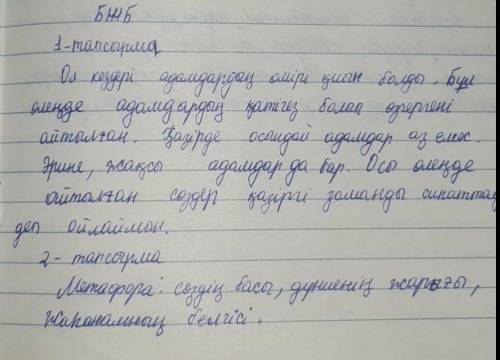 БЖБ
1-тапсырма
Ол кездері адамдардың өмірі қиын болды. Бұл
өлеңде адамдардың қатігез болып өзгергені
айтылған. Қазірде осындай адамдар аз емес.
Әрине, жақсы адамдар да бар. Осы өлеңде
айтылған сөздер қазіргі заманды сипаттай
деп ойлаймын.
2- тапсырма
Метафора: сөздің басы, дүниенің жарығы,
жаһанамның белгісі.